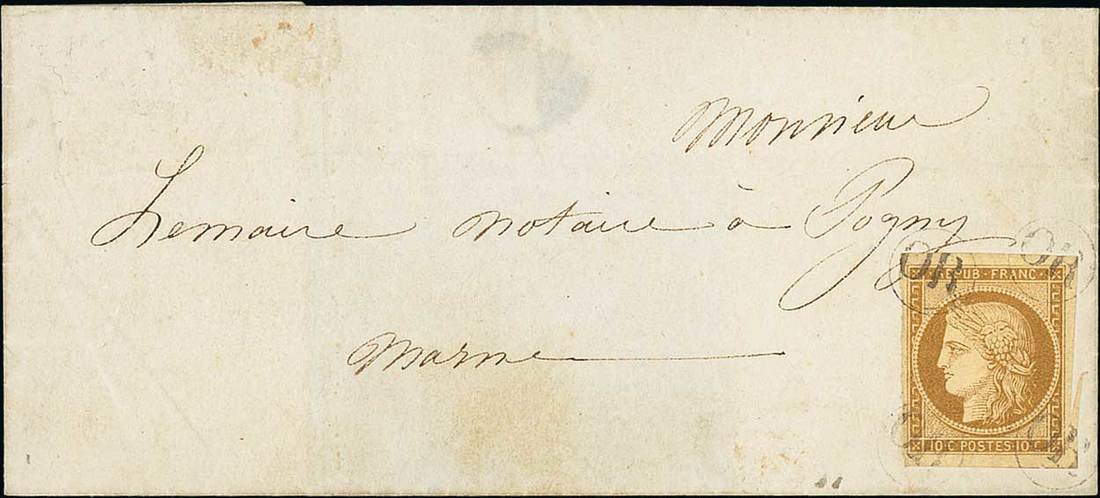 Monsieur
Lemaire notaire à Pogny
Marne
OR OR
REPUB · FRANC ·
10 · C POSTES · 10 · C
OR OR